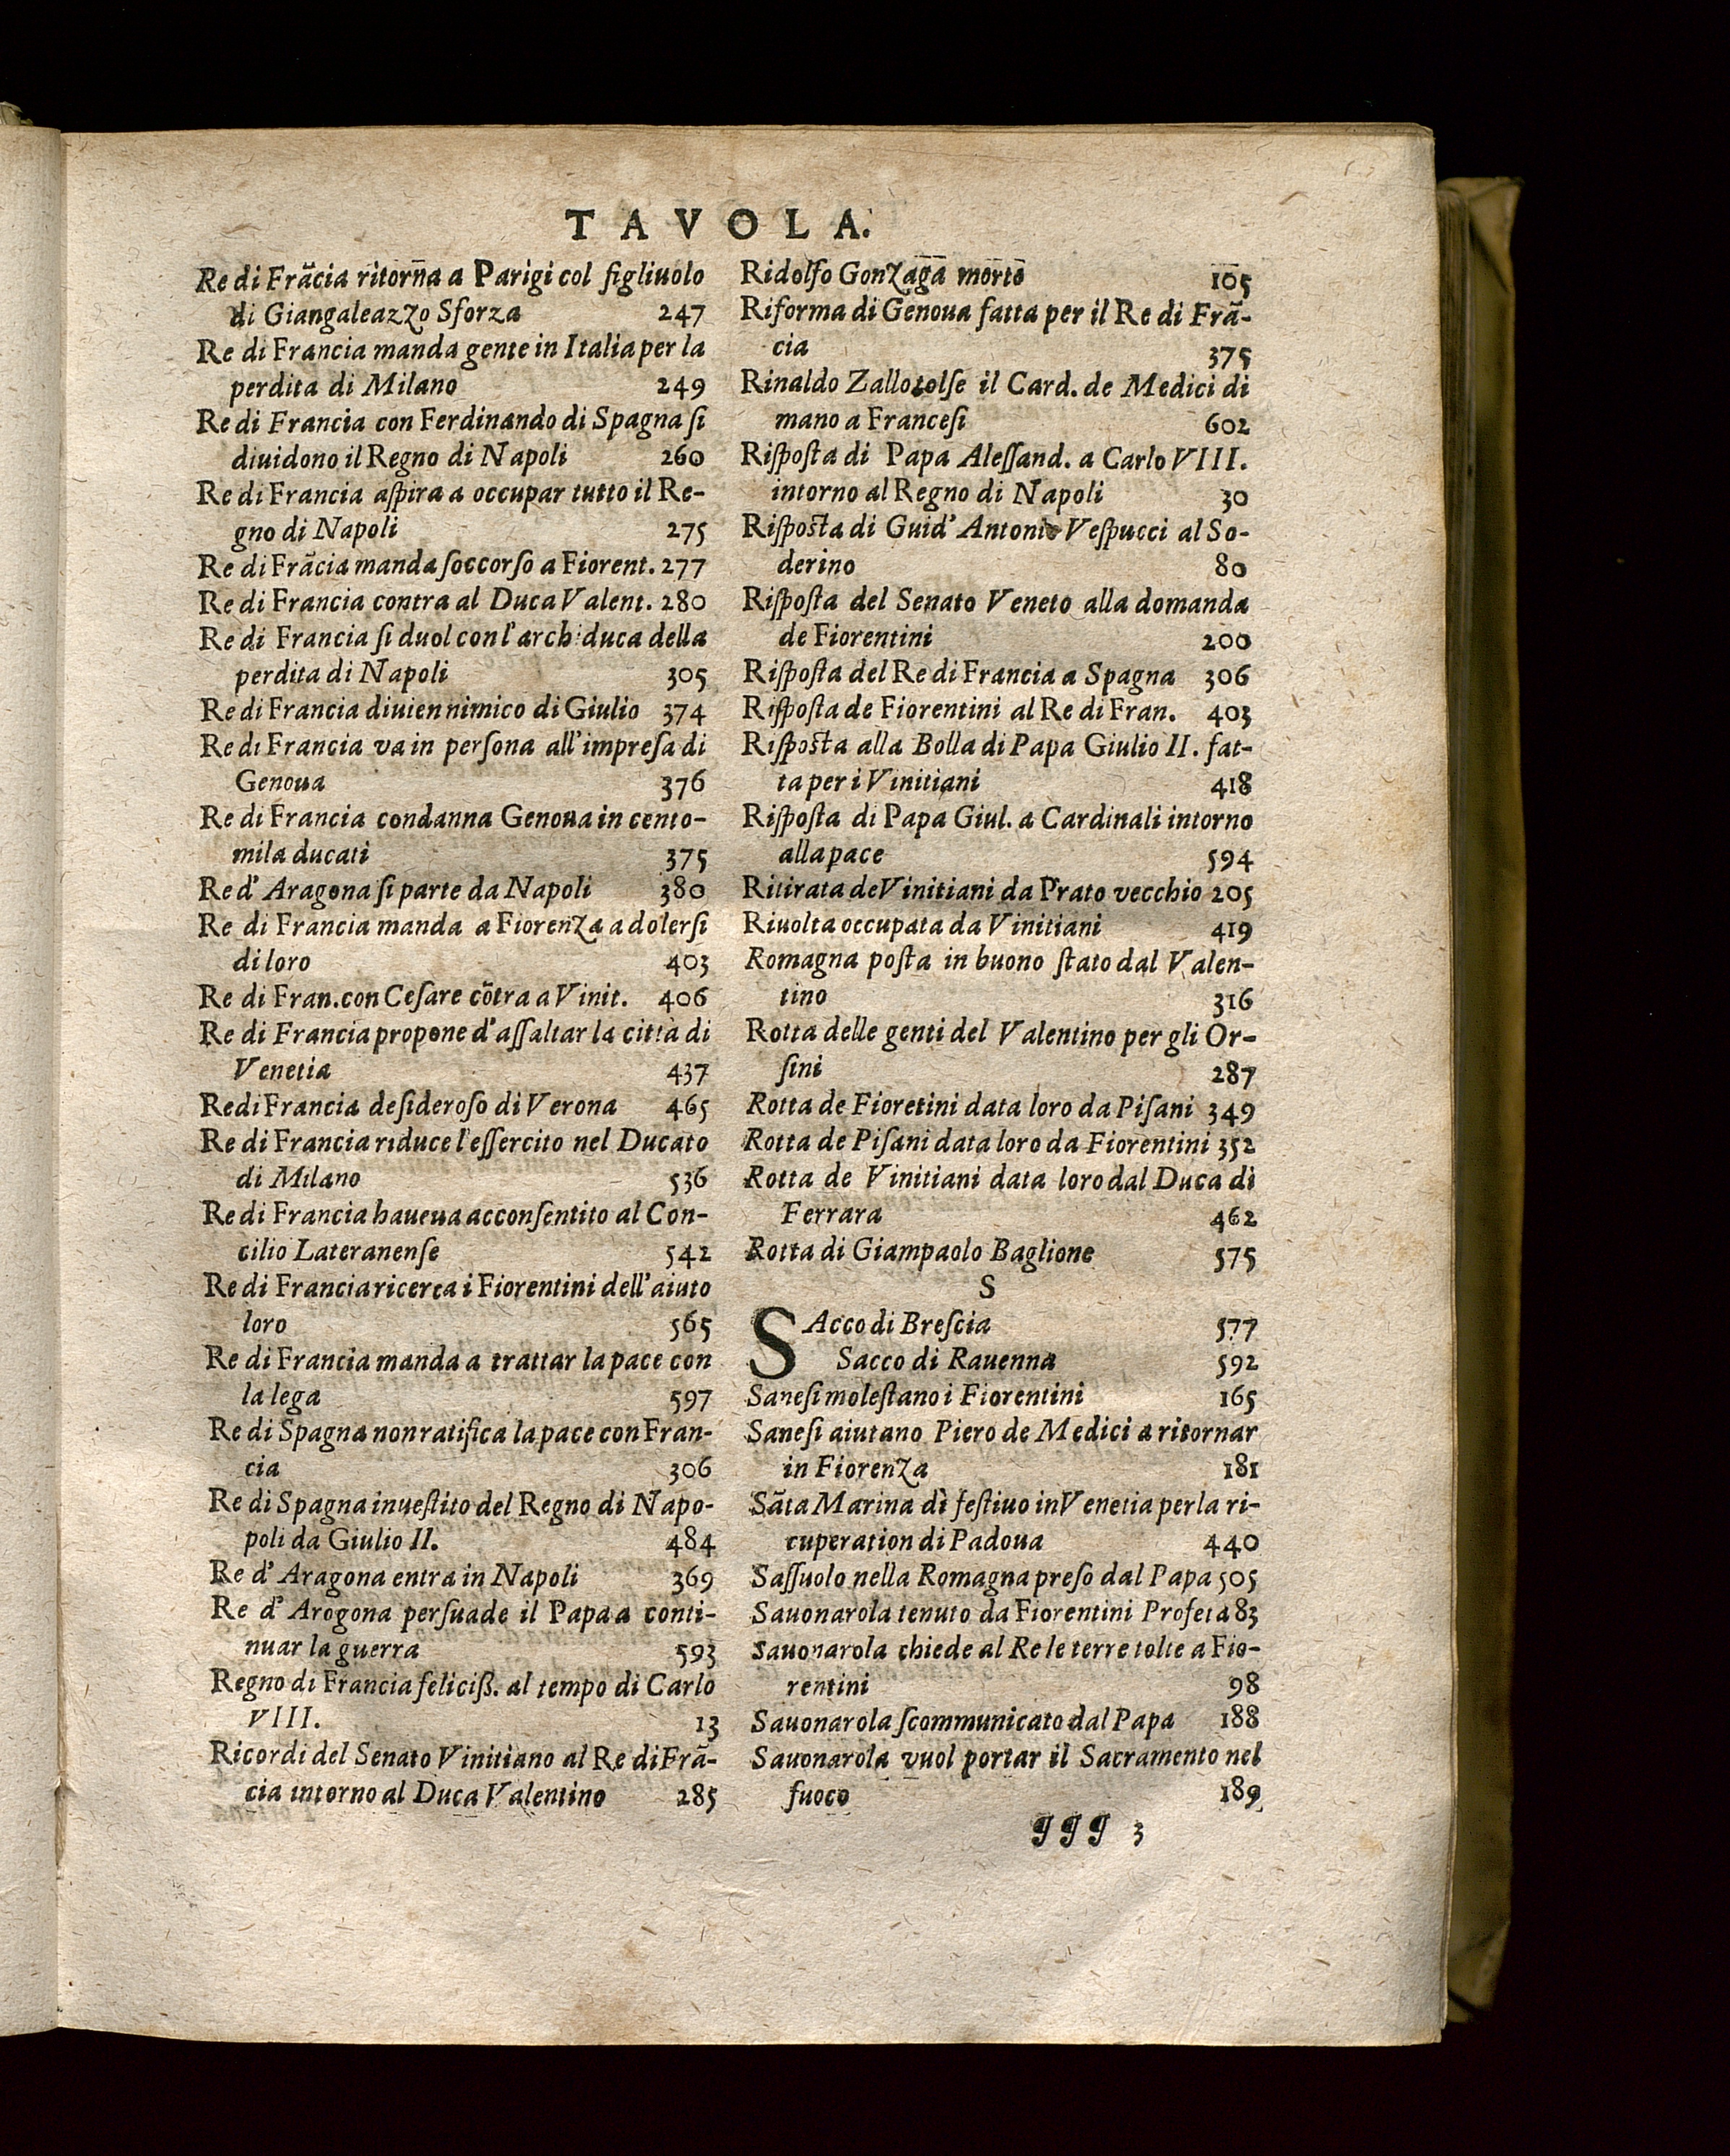 TAVOLA.
Re di Frãcia ritorna a Parigi col figliuolo
di Giangaleazzo Sforza 247
Re di Francia manda gente in Italia per la
perdita di Milano 249
Re di Francia con Ferdinando di Spagna ſi
diuidono il Regno di Napoli 260
Re di Francia aſpira a occupar tutto il Re-
gno di Napoli 275
Re di Frãcia manda ſoccorſo a Fiorent. 277
Re di Francia contra al Duca Valent. 280
Re di Francia ſi duol con l'archiduca della
perdita di Napoli 305
Re di Francia diuien nimico di Giulio 374
Re di Francia va in perſona all'impreſa di
Genoua 376
Re di Francia condanna Genoua in cento-
mila ducati 375
Re d'Aragona ſi parte da Napoli 380
Re di Francia manda a Fiorenza a dolerſi
di loro 403
Re di Fran. con Ceſare cõtra a Vinit. 406
Re di Francia propone d'aſſaltar la città di
Venetia 437
Re di Francia deſideroſo di Verona 465
Re di Francia riduce l'eſſercito nel Ducato
di Milano 536
Re di Francia haueua acconſentito al Con-
cilio Lateranenſe 542
Re di Francia ricerca i Fiorentini dell'aiuto
loro 565
Re di Francia manda a trattar la pace con
la lega 597
Re di Spagna non ratifica la pace con Fran-
cia 306
Re di Spagna inueſtito del Regno di Napo-
poli da Giulio II. 484
Re d'Aragona entra in Napoli 369
Re d'Arogona perſuade il Papa a conti-
nuar la guerra 593
Regno di Francia feliciß. al tempo di Carlo
VIII. 13
Ricordi del Senato Vinitiano al Re di Frã-
cia intorno al Duca Valentino 285
Ridolfo Gonzaga morto 105
Riforma di Genoua fatta per il Re di Frã-
cia 375
Rinaldo Zallo tolſe il Card. de Medici di
mano a Franceſi 602
Riſpoſta di Papa Aleſſand. a Carlo VIII.
intorno al Regno di Napoli 30
Riſpoſta di Guid'Antonio Veſpucci al So-
derino 80
Riſpoſta del Senato Veneto alla domanda
de Fiorentini 200
Riſpoſta del Re di Francia a Spagna 306
Riſpoſta de Fiorentini al Re di Fran. 403
Riſpoſta alla Bolla di Papa Giulio II. fat-
ta per i Vinitiani 418
Riſpoſta di Papa Giul. a Cardinali intorno
alla pace 594
Ritirata de Vinitiani da Prato vecchio 205
Riuolta occupata da Vinitiani 419
Romagna poſta in buono ſtato dal Valen-
tino 316
Rotta delle genti del Valentino per gli Or-
ſini 287
Rotta de Fioretini data loro da Piſani 349
Rotta de Piſani data loro da Fiorentini 352
Rotta de Vinitiani data loro dal Duca di
Ferrara 462
Rotta di Giampaolo Baglione 575
S
SAcco di Breſcia 577
Sacco di Rauenna 592
Saneſi moleſtano i Fiorentini 165
Saneſi aiutano Piero de Medici a ritornar
in Fiorenza 181
Sãta Marina dì feſtiuo in Venetia per la ri-
cuperation di Padoua 440
Saſſuolo nella Romagna preſo dal Papa 505
Sauonarola tenuto da Fiorentini Profeta 83
Sauonarola chiede al Re le terre tolte a Fio-
rentini 98
Sauonarola ſcommunicato dal Papa 188
Sauonarola vuol portar il Sacramento nel
fuoco 189
ggg 3